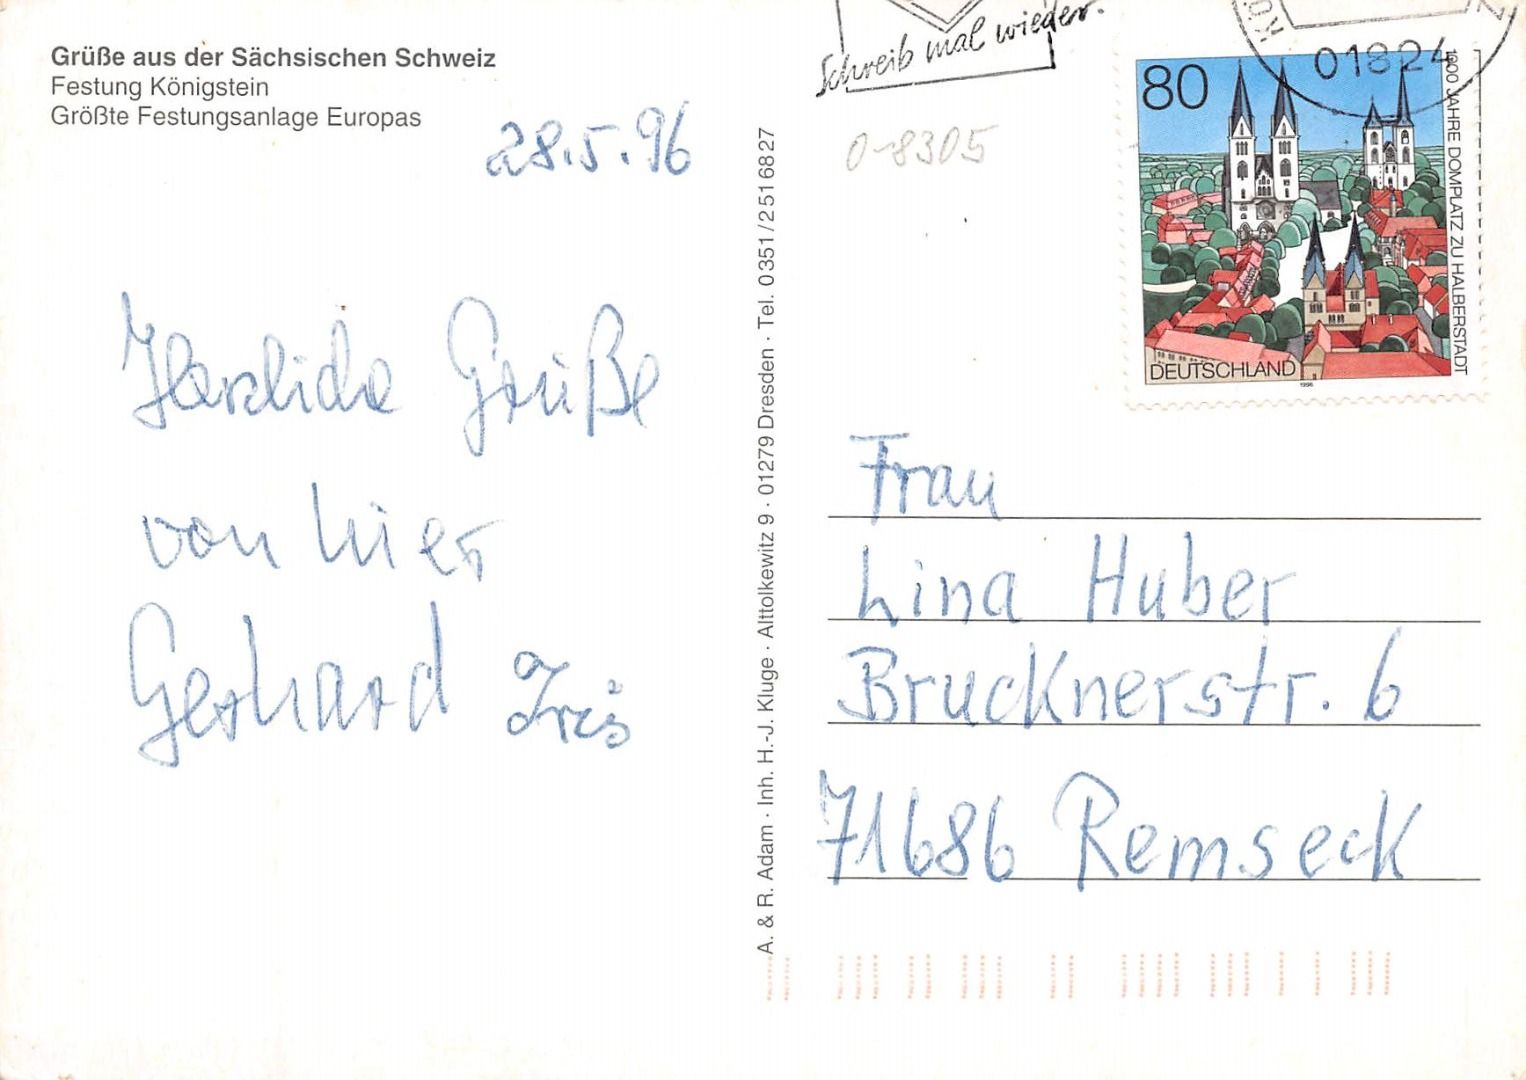 Grüße aus der Sächsischen Schweiz
Festung Königstein
Größte Festungsanlage Europas
28.5.96
Herzliche Grüße
von hier
Gerhard Iris
A. & R. Adam · Inh. H.-J. Kluge · Alttolkewitz 9 · 01279 Dresden · Tel. 0351/2516827
Schreib mal wieder.
01824
0-8305
80
1000 JAHRE DOMPLATZ ZU HALBERSTADT
DEUTSCHLAND
1996
Frau
Lina Huber
Brucknerstr. 6
71686 Remseck